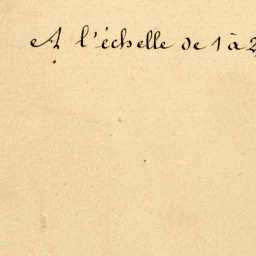 A l'échelle de 1 à 2